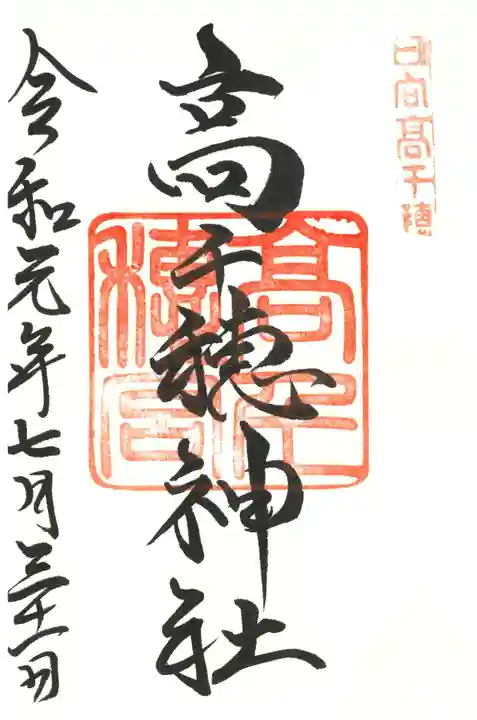 日向髙千穂
高千穂神社
髙千穂宮
令和元年七月三十一日